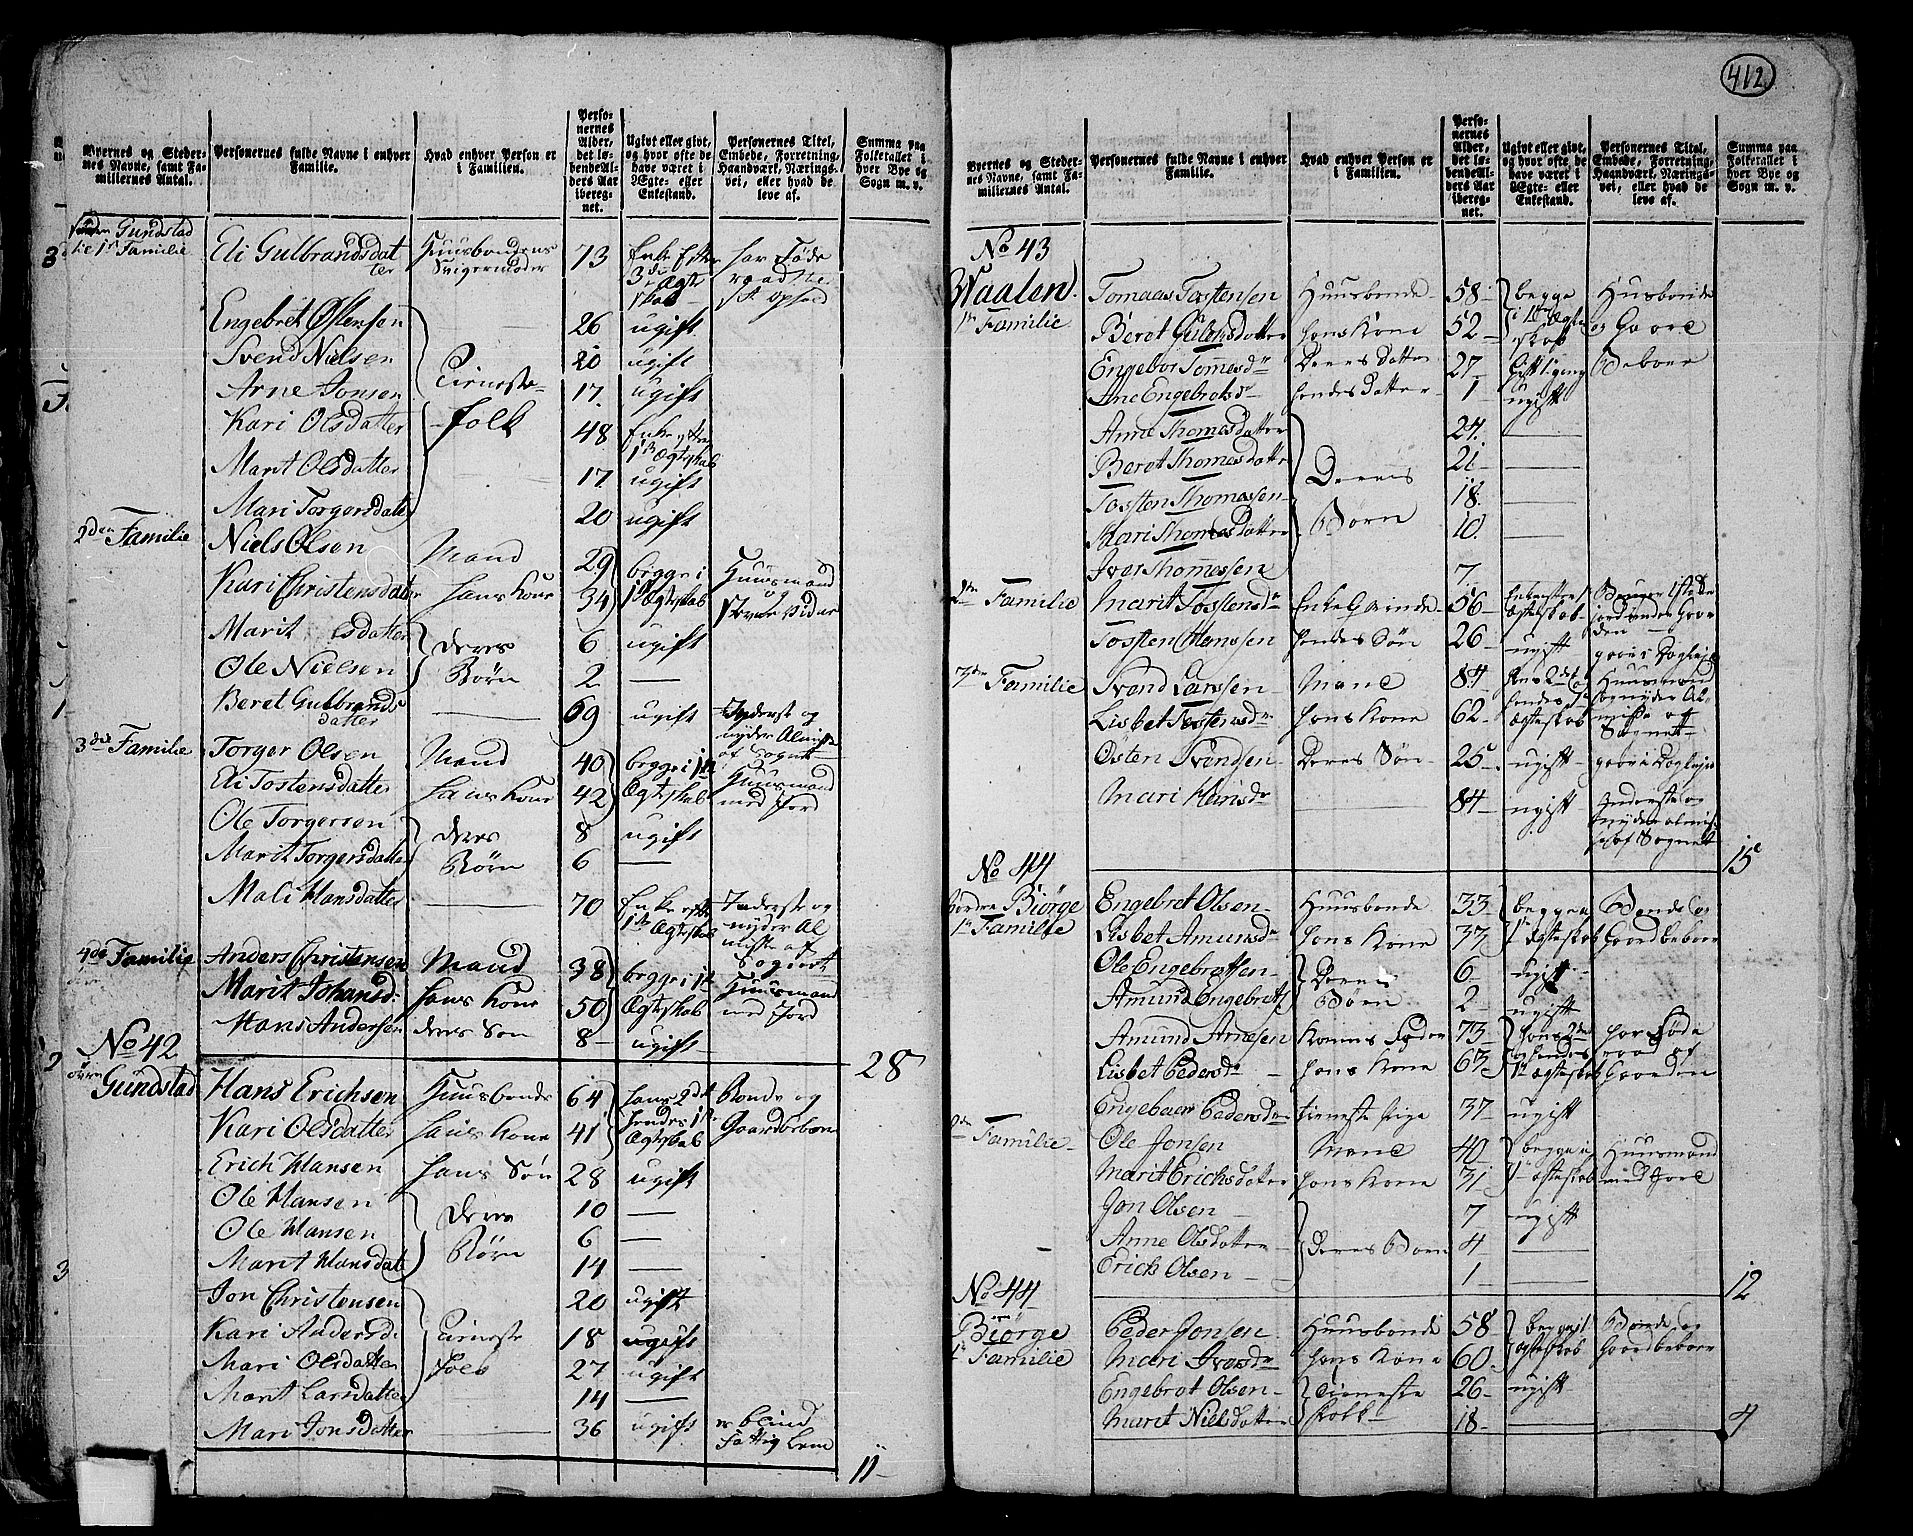 412.
Byernes og Stedernes Navne, samt Familiernes Antal.
Personernes fulde Navne i enhver Familie.
Hvad enhver Person er i Familien.
Personernes Alder, det løbende Alders Aar iberegnet.
Ugivt eller givt, og hvor ofte de have været i Ægte- eller Enkestand.
Personernes Titel, Embede, Forretning, Haandværk, Næringsvei, eller hvad de leve af.
Summa paa Folketallet i hver Bye og Sogn m. v.
Gundstad
1te Familie
Eli Gulbrandsdatter Huusbondens Svigermoder 73 Enke efter 3de Ægteskab
Engebret Østensen 26 ugift
Svend Nielsen 20 ugift
Arne Jonsen Tieneste- 17. ugift
Kari Olsdatter folk 48 Enke efter 1te Ægteskab
Marit Olsdatter 17. ugift
Mari Torgersdatter 20 ugift
2den Familie Niels Olsen Mand 29 begge i Huusmand og
Kari Christensdatter hans Kone 34 1te Ægteskab
Marit Olsdatter deres 6 ugift
Ole Nielsen Børn 2 —
Beret Gulbrandsdatter — 69 ugift Inderst og nyder Almisse af Sognet
3die Familie Torger Olsen Mand 40 begge i 1te Huusmand
Eli Tostensdatter hans Kone 42 Ægteskab med Jord
Ole Torgersen deres 8 ugift
Marit Torgersdatter Børn 6 —
Mali Hansdatter — 70 Enke efter 1te Ægteskab Inderste og nyder Almisse af Sognet
4de Familie Anders Christensen Mand 38 begge i 1te Huusmand
Marit Johansd: hans Kone 50 Ægteskab med Jord
Hans Andersen deres Søn 8 ugift
28
No 42
øvre Gundstad
Hans Erichsen Huusbonde 64 hans 2det Bonde og
Kari Olsdatter hans Kone 41 hendes 1te Ægteskab Gaardbeboer
Erich Hansen hans Søn 28 ugift
Ole Hansen deres 10 —
Ole Hansen Børn 6 —
Marit Hansdatter 14 —
Jon Christensen 20 ugift
Kari Andersd: Tieneste 18 ugift
Mari Olsdatter folk 27 ugift
Marit Larsdatter 14 —
Mari Jonsdatter — 36 ugift er blind Fattig Lem
11
Byernes og Stedernes Navne, samt Familiernes Antal.
Personernes fulde Navne i enhver Familie.
Hvad enhver Person er i Familien.
Personernes Alder, det løbende Alders Aar iberegnet.
Ugivt eller givt, og hvor ofte de have været i Ægte- eller Enkestand.
Personernes Titel, Embede, Forretning, Haandværk, Næringsvei, eller hvad de leve af.
Summa paa Folketallet i hver Bye og Sogn m. v.
No 43
Waalen
1te Familie
Tomaas Tostensen Huusbonde 58 begge Husbonde
Beret hans Kone 52 i 1te Ægteskab og Gaard
Engebor Tomasdr Deres Datter 27 Gift 1 gang Beboer
Ane Engebretsdr hendes Datter 1 ugift
Anne Thomesdatter 24. —
Beret Thomesdatter Deres 21 —
Tosten Thomessen 18. —
Mari Thomesdatter Børn 10. —
Iver Thomessen 7.
2den Familie Marit Tostensdr Enke Qvinde 56
Tosten Hanssen hendes Søn 26 ugift
3die Familie Svend Larssen Mand 84 Huusmand
Lisbet Tostensdr hans Kone 62 Ægteskab
Østen Svendsen Deres Søn 25 ugift
Mari Hansdr 84 ugift Inderste og nyder almisse af Sognet
15
No 44
Nordre Biørge
1te Familie
Engebret Olsen Huusbonde 33 begge i Bonde og
Lisbet Amundsdr hans Kone 37 1te Ægteskab Gaardbeboer
Ole Engebretsen Deres 6 ugift
Amund Engebrets Børn 2 ugift
Amund Arnesen Konens Fader 73 hans 2den har Føde
Lisbet Pedersdr hans Kone 63 og hendes 1te Ægteskab raad af Gaarden
Engebaar Pedersdr tieneste Pige 37 ugift
2den Familie Ole Jonsen Mand 40 begge i Huusmand
Marit Erichsdatter hans Kone 31 1te Ægteskab med Jord
Jon Olsen 7 ugift
Anne Olsdatter Deres Børn 4 —
Erich Olsen 1 —
12
No 44
Biørge
1te Familie
Peder Jonsen Huusbonde 58 begge i 1 Bonde og
Mari Iversdr hans Kone 60 Ægteskab Gaardbeboer
Engebret Olsen Tieneste 26 ugift
Marit Nielsdatter Folk 18 —
4